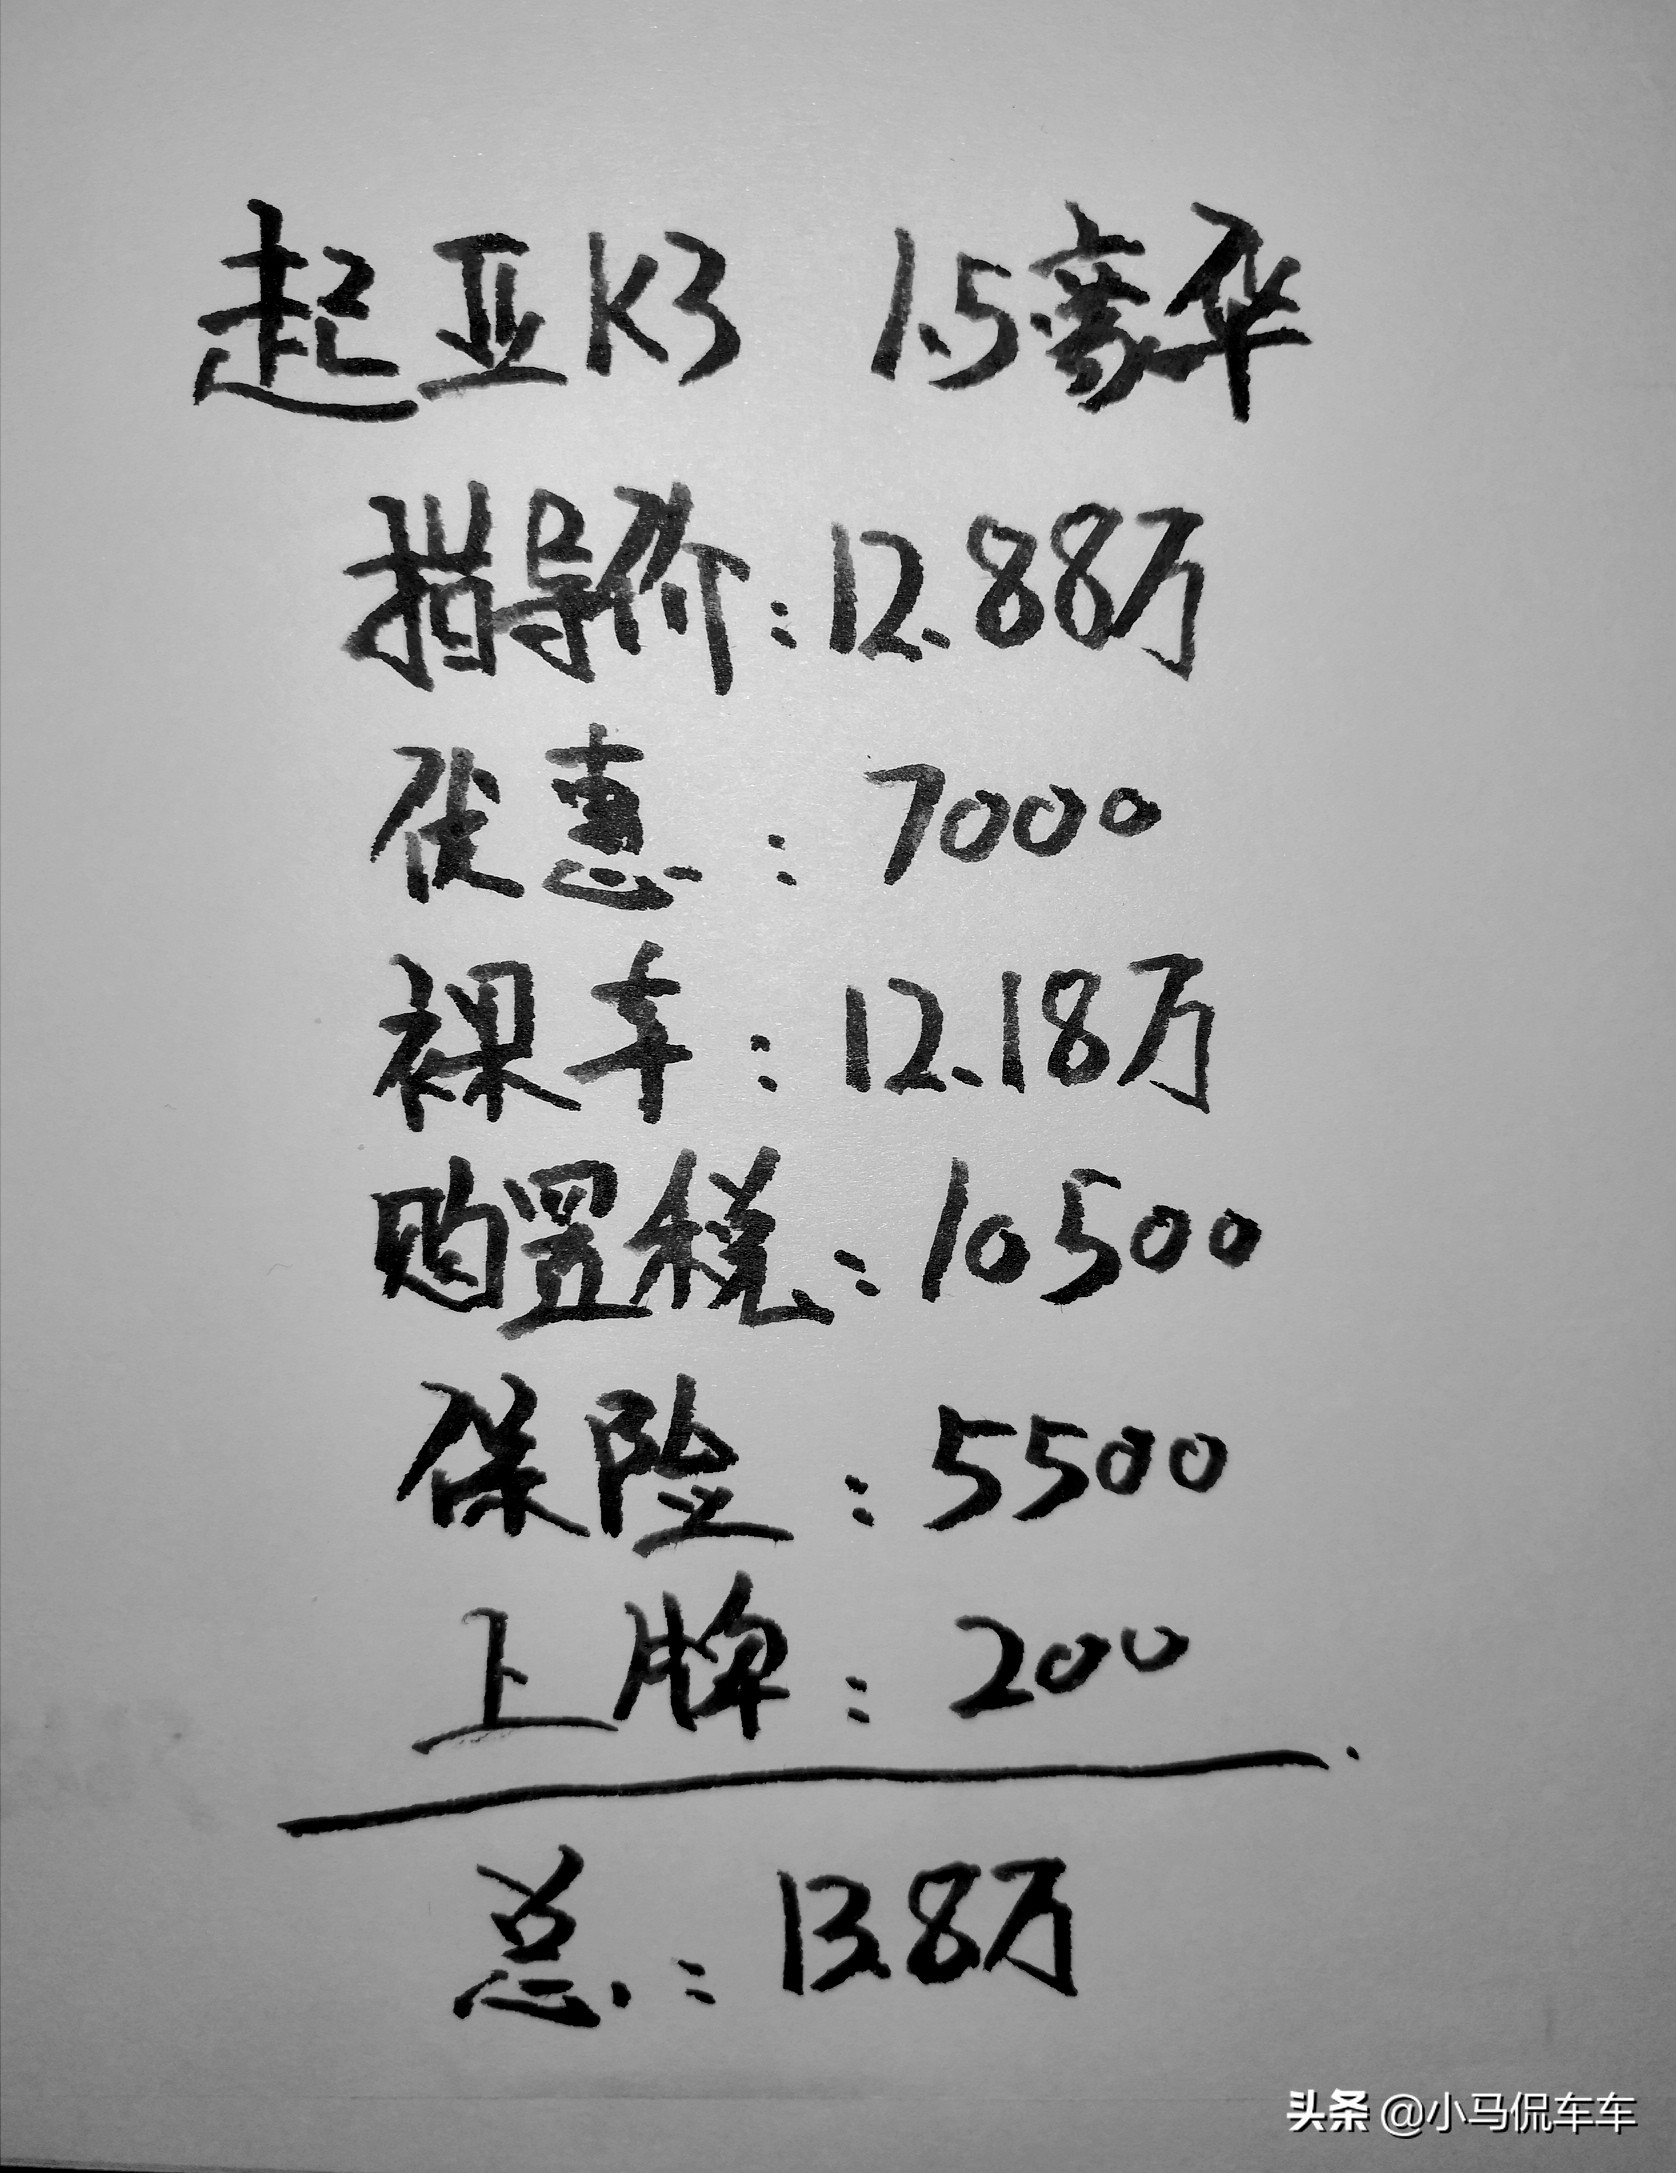 起亚K3 1.5豪华
指导价:12.88万
优惠:7000
裸车:12.18万
购置税:10500
保险:5500
上牌:200
总:13.8万
头条 @小马侃车车